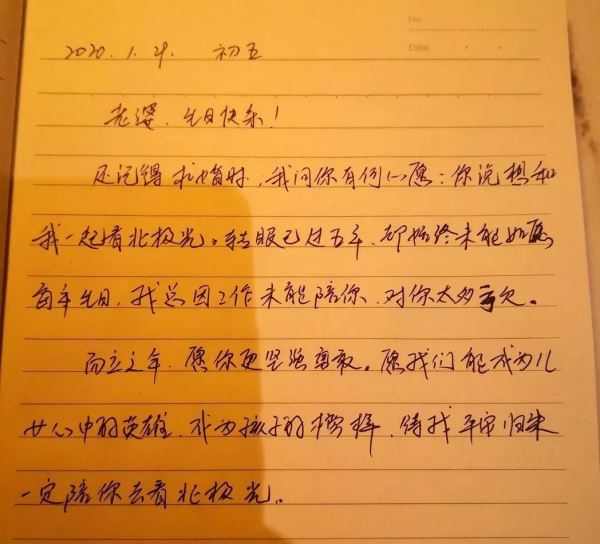 No.
Date
2020.1.29. 初五
老婆,生日快乐!
还记得求婚时,我问你有何心愿:你说想和
我一起看北极光。转眼已过五年,却始终未能如愿
每年生日,我总因工作未能陪你,对你太多亏欠。
而立之年,愿你更坚强勇敢。愿我们能成为儿
女心中的英雄,成为孩子的榜样,待我平安归来
一定陪你去看北极光。